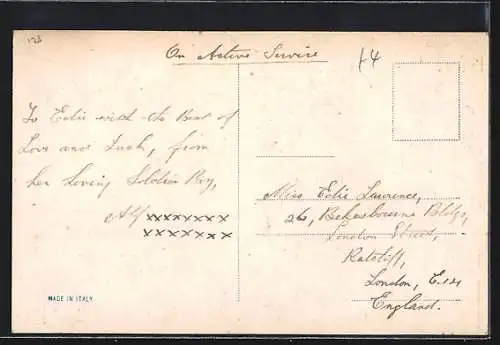 123
On Active Service
£4
To Edie with the Best of
Love and Luck, from
her Loving Soldier Boy,
Alf xxxxxxxx
xxxxxxx
Miss Edie Lawrence,
26, Bekesbourne Bldgs,
London Street,
Ratcliff,
London, E.14
England.
MADE IN ITALY